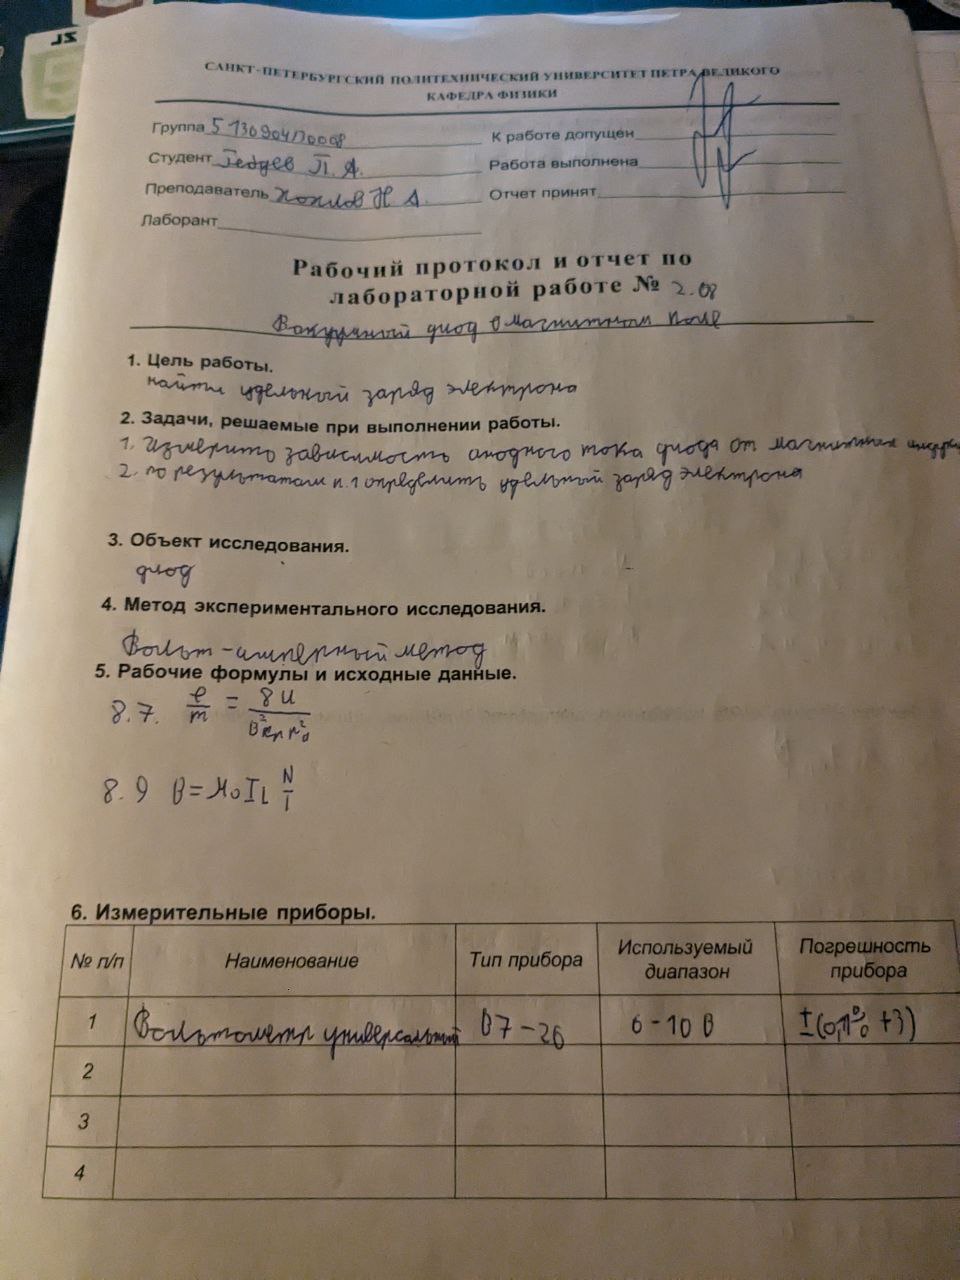 САНКТ-ПЕТЕРБУРГСКИЙ ПОЛИТЕХНИЧЕСКИЙ УНИВЕРСИТЕТ ПЕТРА ВЕЛИКОГО
КАФЕДРА ФИЗИКИ
Группа 5130904/70008
К работе допущен
Студент П. А.
Работа выполнена
Преподаватель Хохлов Н А.
Отчет принят
Лаборант
Рабочий протокол и отчет по
лабораторной работе № 2.08
Вакуумный диод в магнитном поле
1. Цель работы.
найти удельный заряд электрона
2. Задачи, решаемые при выполнении работы.
1. Измерить зависимость анодного тока диода от магнитной
2. по результатам п.1 определить удельный заряд электрона
3. Объект исследования.
диод
4. Метод экспериментального исследования.
Вольт-амперный метод
5. Рабочие формулы и исходные данные.
8.7. e/m = 8U / B²кр r²a
8.9 B = μ₀ I L N/l
6. Измерительные приборы.
№ п/п Наименование Тип прибора Используемый диапазон Погрешность прибора
1 Вольтметр универсальный В7-26 6-10 В ±(0,1% +3)
2
3
4